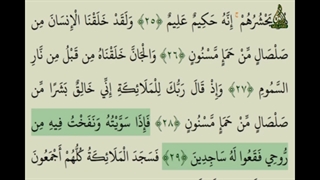 يَحْشُرُهُمْ ۚ إِنَّهُ حَكِيمٌ عَلِيمٌ ﴿٢٥﴾ وَلَقَدْ خَلَقْنَا الْإِنسَانَ مِن
صَلْصَالٍ مِّنْ حَمَإٍ مَّسْنُونٍ ﴿٢٦﴾ وَالْجَانَّ خَلَقْنَاهُ مِن قَبْلُ مِن نَّارِ
السَّمُومِ ﴿٢٧﴾ وَإِذْ قَالَ رَبُّكَ لِلْمَلَائِكَةِ إِنِّي خَالِقٌ بَشَرًا مِّن
صَلْصَالٍ مِّنْ حَمَإٍ مَّسْنُونٍ ﴿٢٨﴾ فَإِذَا سَوَّيْتُهُ وَنَفَخْتُ فِيهِ مِن
رُّوحِي فَقَعُوا لَهُ سَاجِدِينَ ﴿٢٩﴾ فَسَجَدَ الْمَلَائِكَةُ كُلُّهُمْ أَجْمَعُونَ